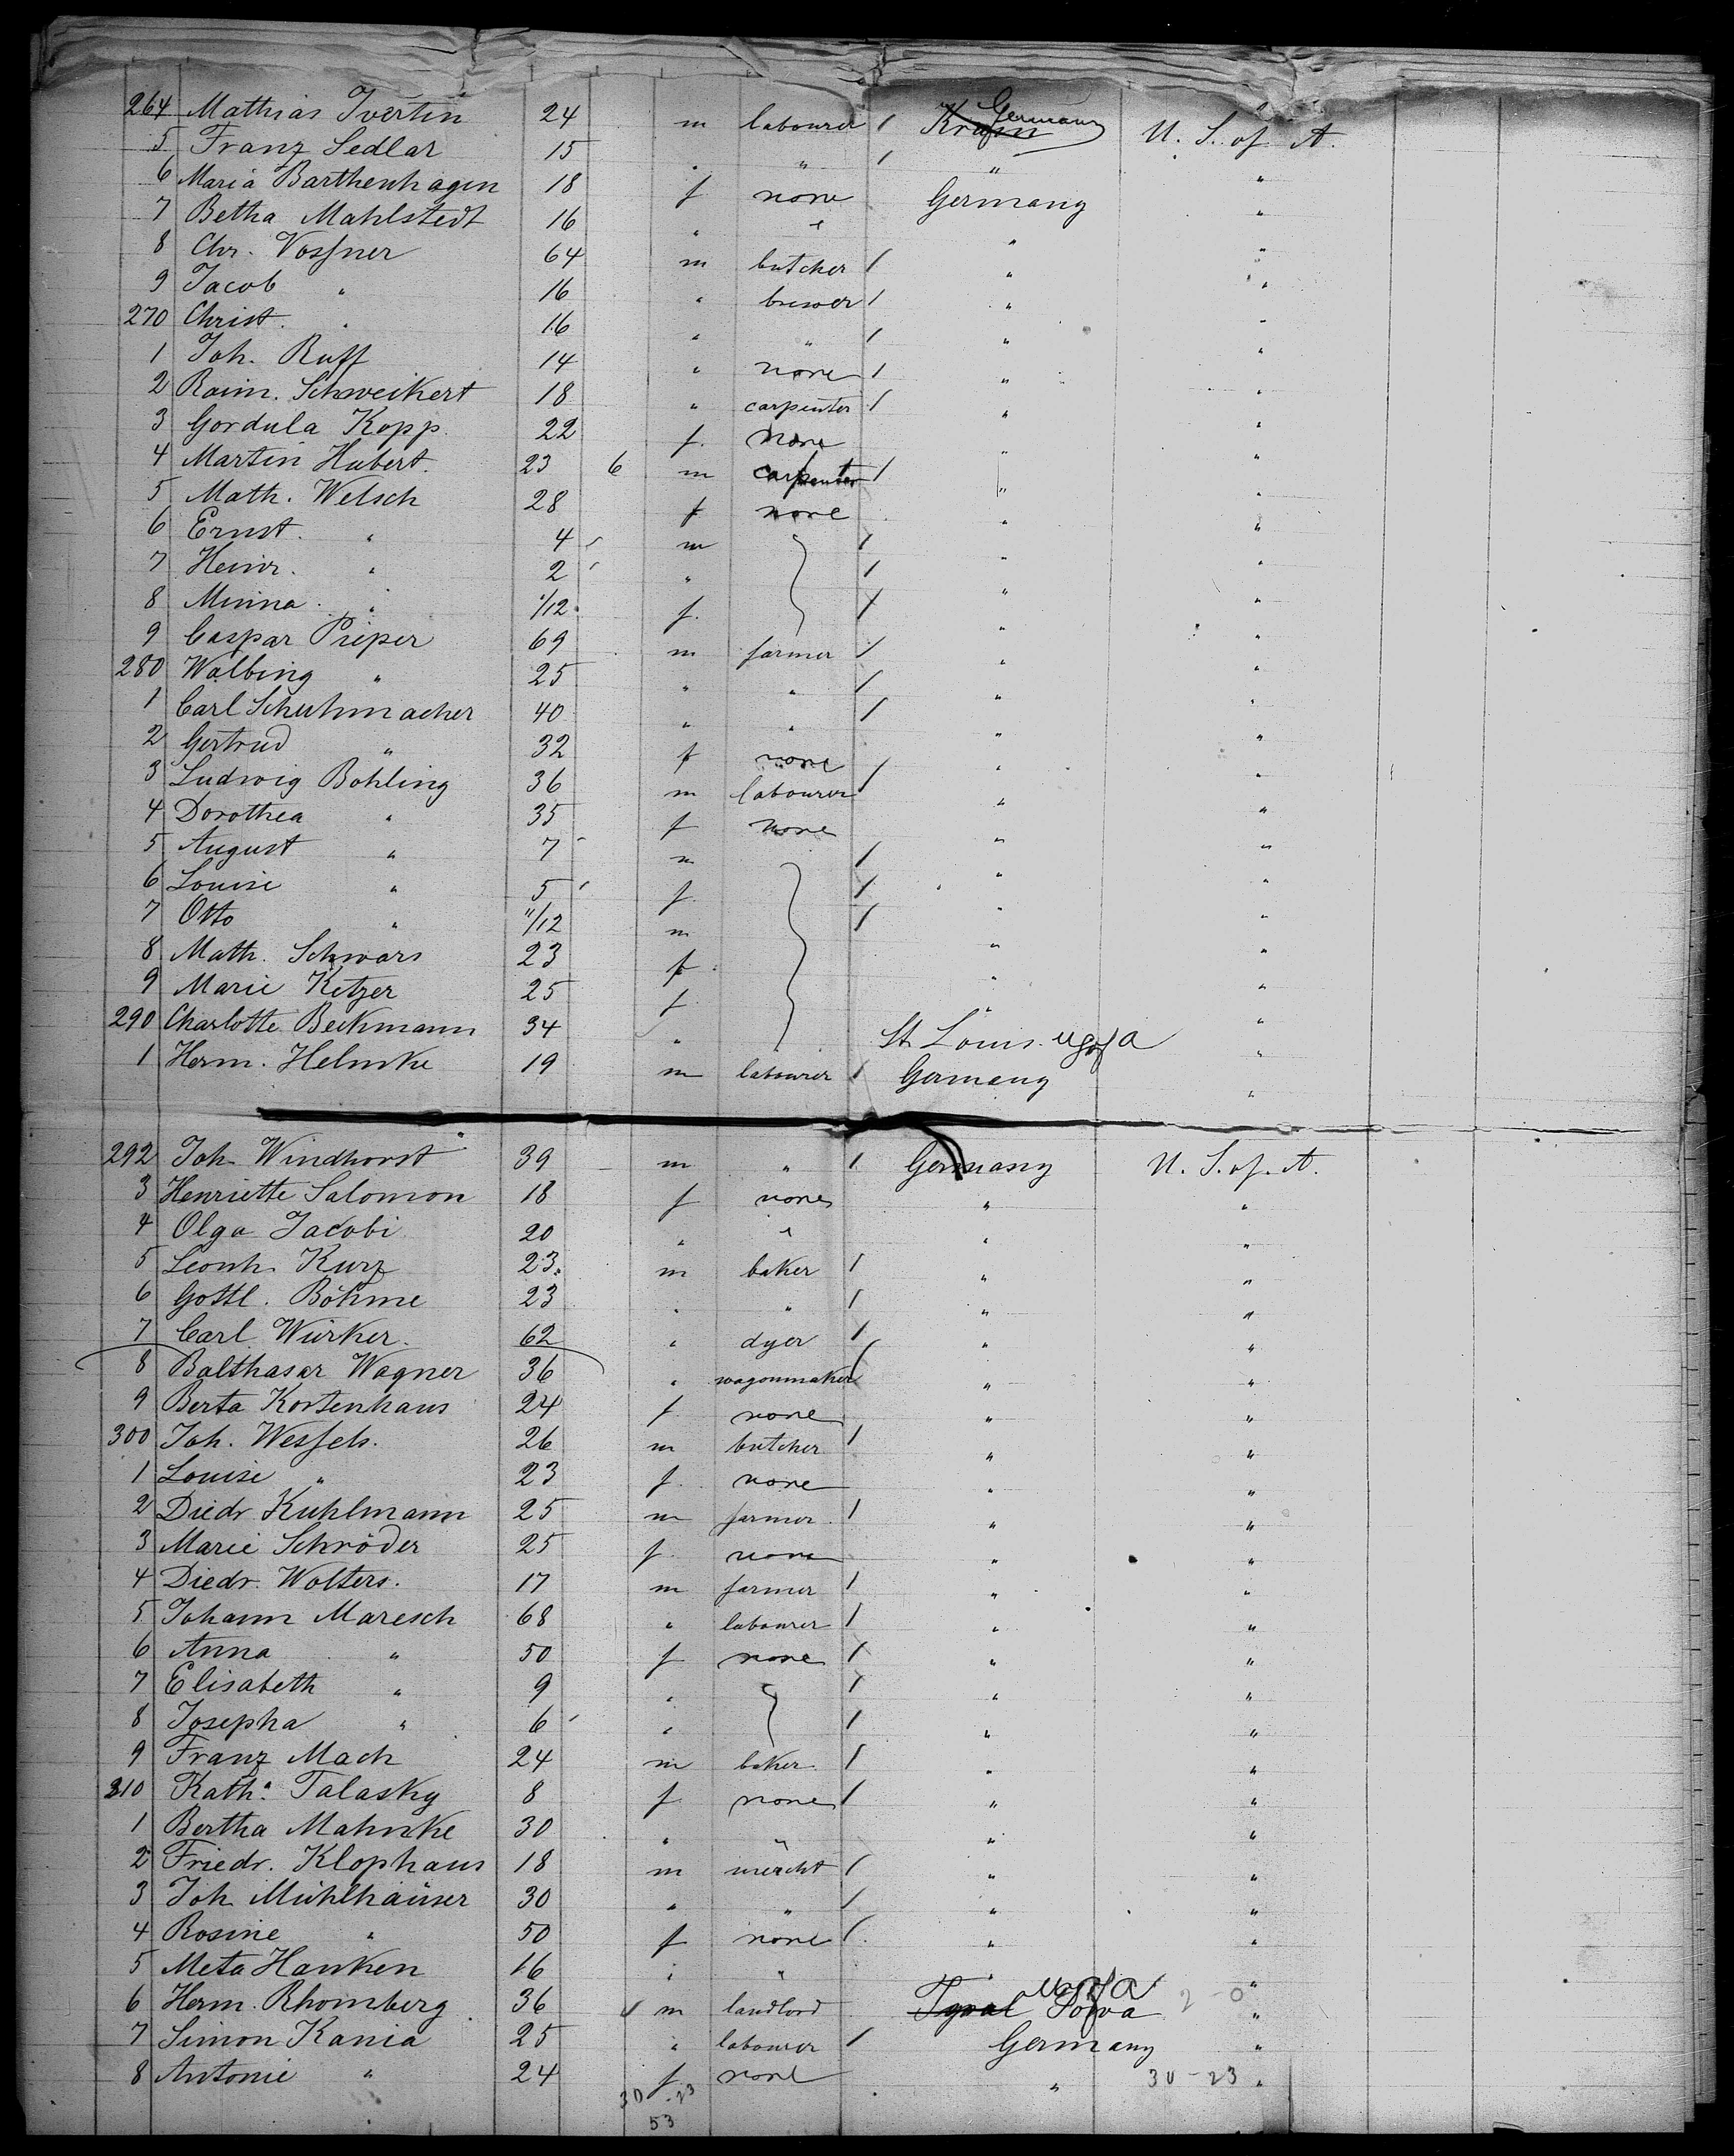 264 Mathias Ivertin 24 m labourer / Krain Germany U. S. of A.
5 Franz Sedlar 15 " " / " "
6 Maria Barthenhagen 18 f none Germany "
7 Betha Mahlstedt 16 " " " "
8 Chr. Vossner 64 m butcher / " "
9 Jacob " 16 " brewer / " "
270 Christ. " 16 " " / " "
1 Joh. Ruff 14 " none / " "
2 Raim. Schweikert 18 " carpenter / " "
3 Gordula Kopp. 22 f. none " "
4 Martin Hubert. 23 6 m carpenter / " "
5 Math. Welsch 28 f none " "
6 Ernst. " 4 m / " "
7 Heinr. " 2 " / " "
8 Minna. " /12 f. / " "
9 Caspar Pieper 69 m farmer / " "
280 Walbing " 25 " " / " "
1 Carl Schuhmacher 40 " " / " "
2 Gertrud " 32 f none " "
3 Ludwig Bohling 36 m labourer / " "
4 Dorothea " 35 f none " "
5 August " 7 m / " "
6 Louise " 5 f. / " "
7 Otto " 11/12 m / " "
8 Math. Schwars 23 f " "
9 Marie Ketzer 25 f. " "
290 Charlotte Beckmann 34 " St. Louis U S of A "
1 Herm. Helmke 19 m labourer / Germany "
292 Joh. Windhorst 39 m " / Germany U. S. of. A.
3 Henriette Salomon 18 f none " "
4 Olga Jacobi 20 " " " "
5 Leonh. Kurz 23. m baker / " "
6 Gottl. Böhme 23 " " / " "
7 Carl Würker. 62 " dyer / " "
8 Balthasar Wagner 36 " wagonmaker / " "
9 Berta Kortenhaus 24 f none " "
300 Joh. Wessels. 26 m butcher / " "
1 Louise " 23 f. none " "
2 Diedr. Kuhlmann 25 m farmer. / " "
3 Marie Schröder 25 f. none " "
4 Diedr. Wolters. 17 m farmer / " "
5 Johann Maresch 68 " labourer / " "
6 Anna " 50 f none / " "
7 Elisabeth " 9 " / " "
8 Josepha " 6 " / " "
9 Franz Mach 24 m baker. / " "
310 Kath. Talasky 8 f. none / " "
1 Bertha Mahnke 30 " " " "
2 Friedr. Klophaus 18 m mercht / " "
3 Joh. Mühlhäuser 30 " " / " "
4 Rosine " 50 f none / " "
5 Meta Hanken 16 " " " "
6 Herm. Rhomberg. 36 m landlord Tyrol Iowa U S of A 2-0 "
7 Simon Kania 25 " labourer / Germany "
8 Antonie " 24 f none " 30-23 "
30 - 23
53